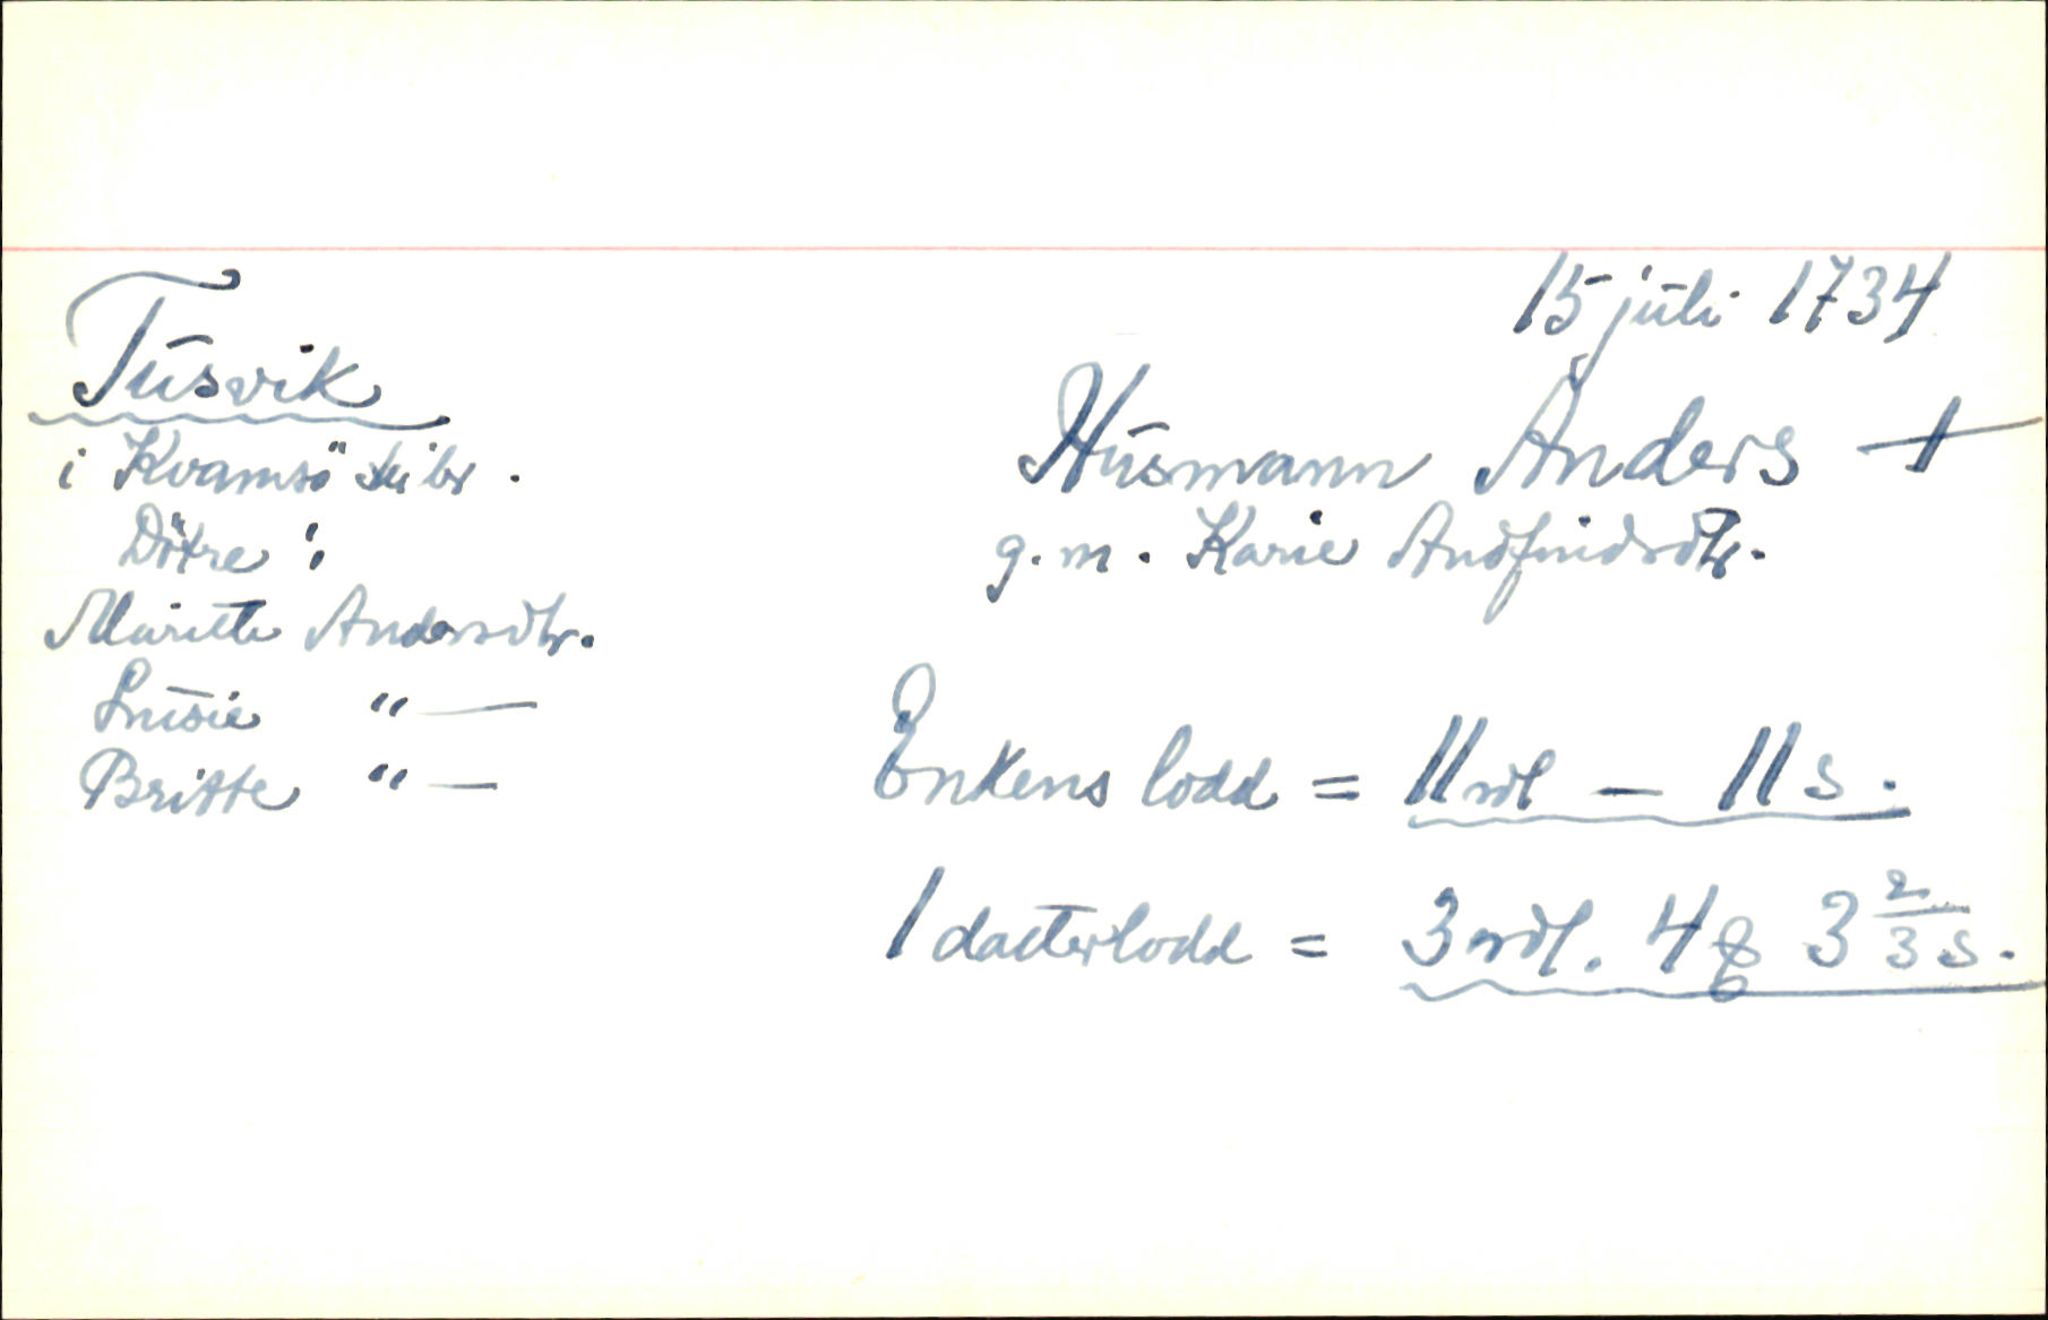 15 juli 1734
Tusvik
i Kvamsö skibr.
Husmann Anders +
Dötre:
g. m. Karie Andfindsdtr.
Maritte Andersdtr.
Lusie "—
Britte "—
Enkens lodd = 11 rdl — 11 s.
1 datterlodd = 3 rdl. 4 3 2/3 s.